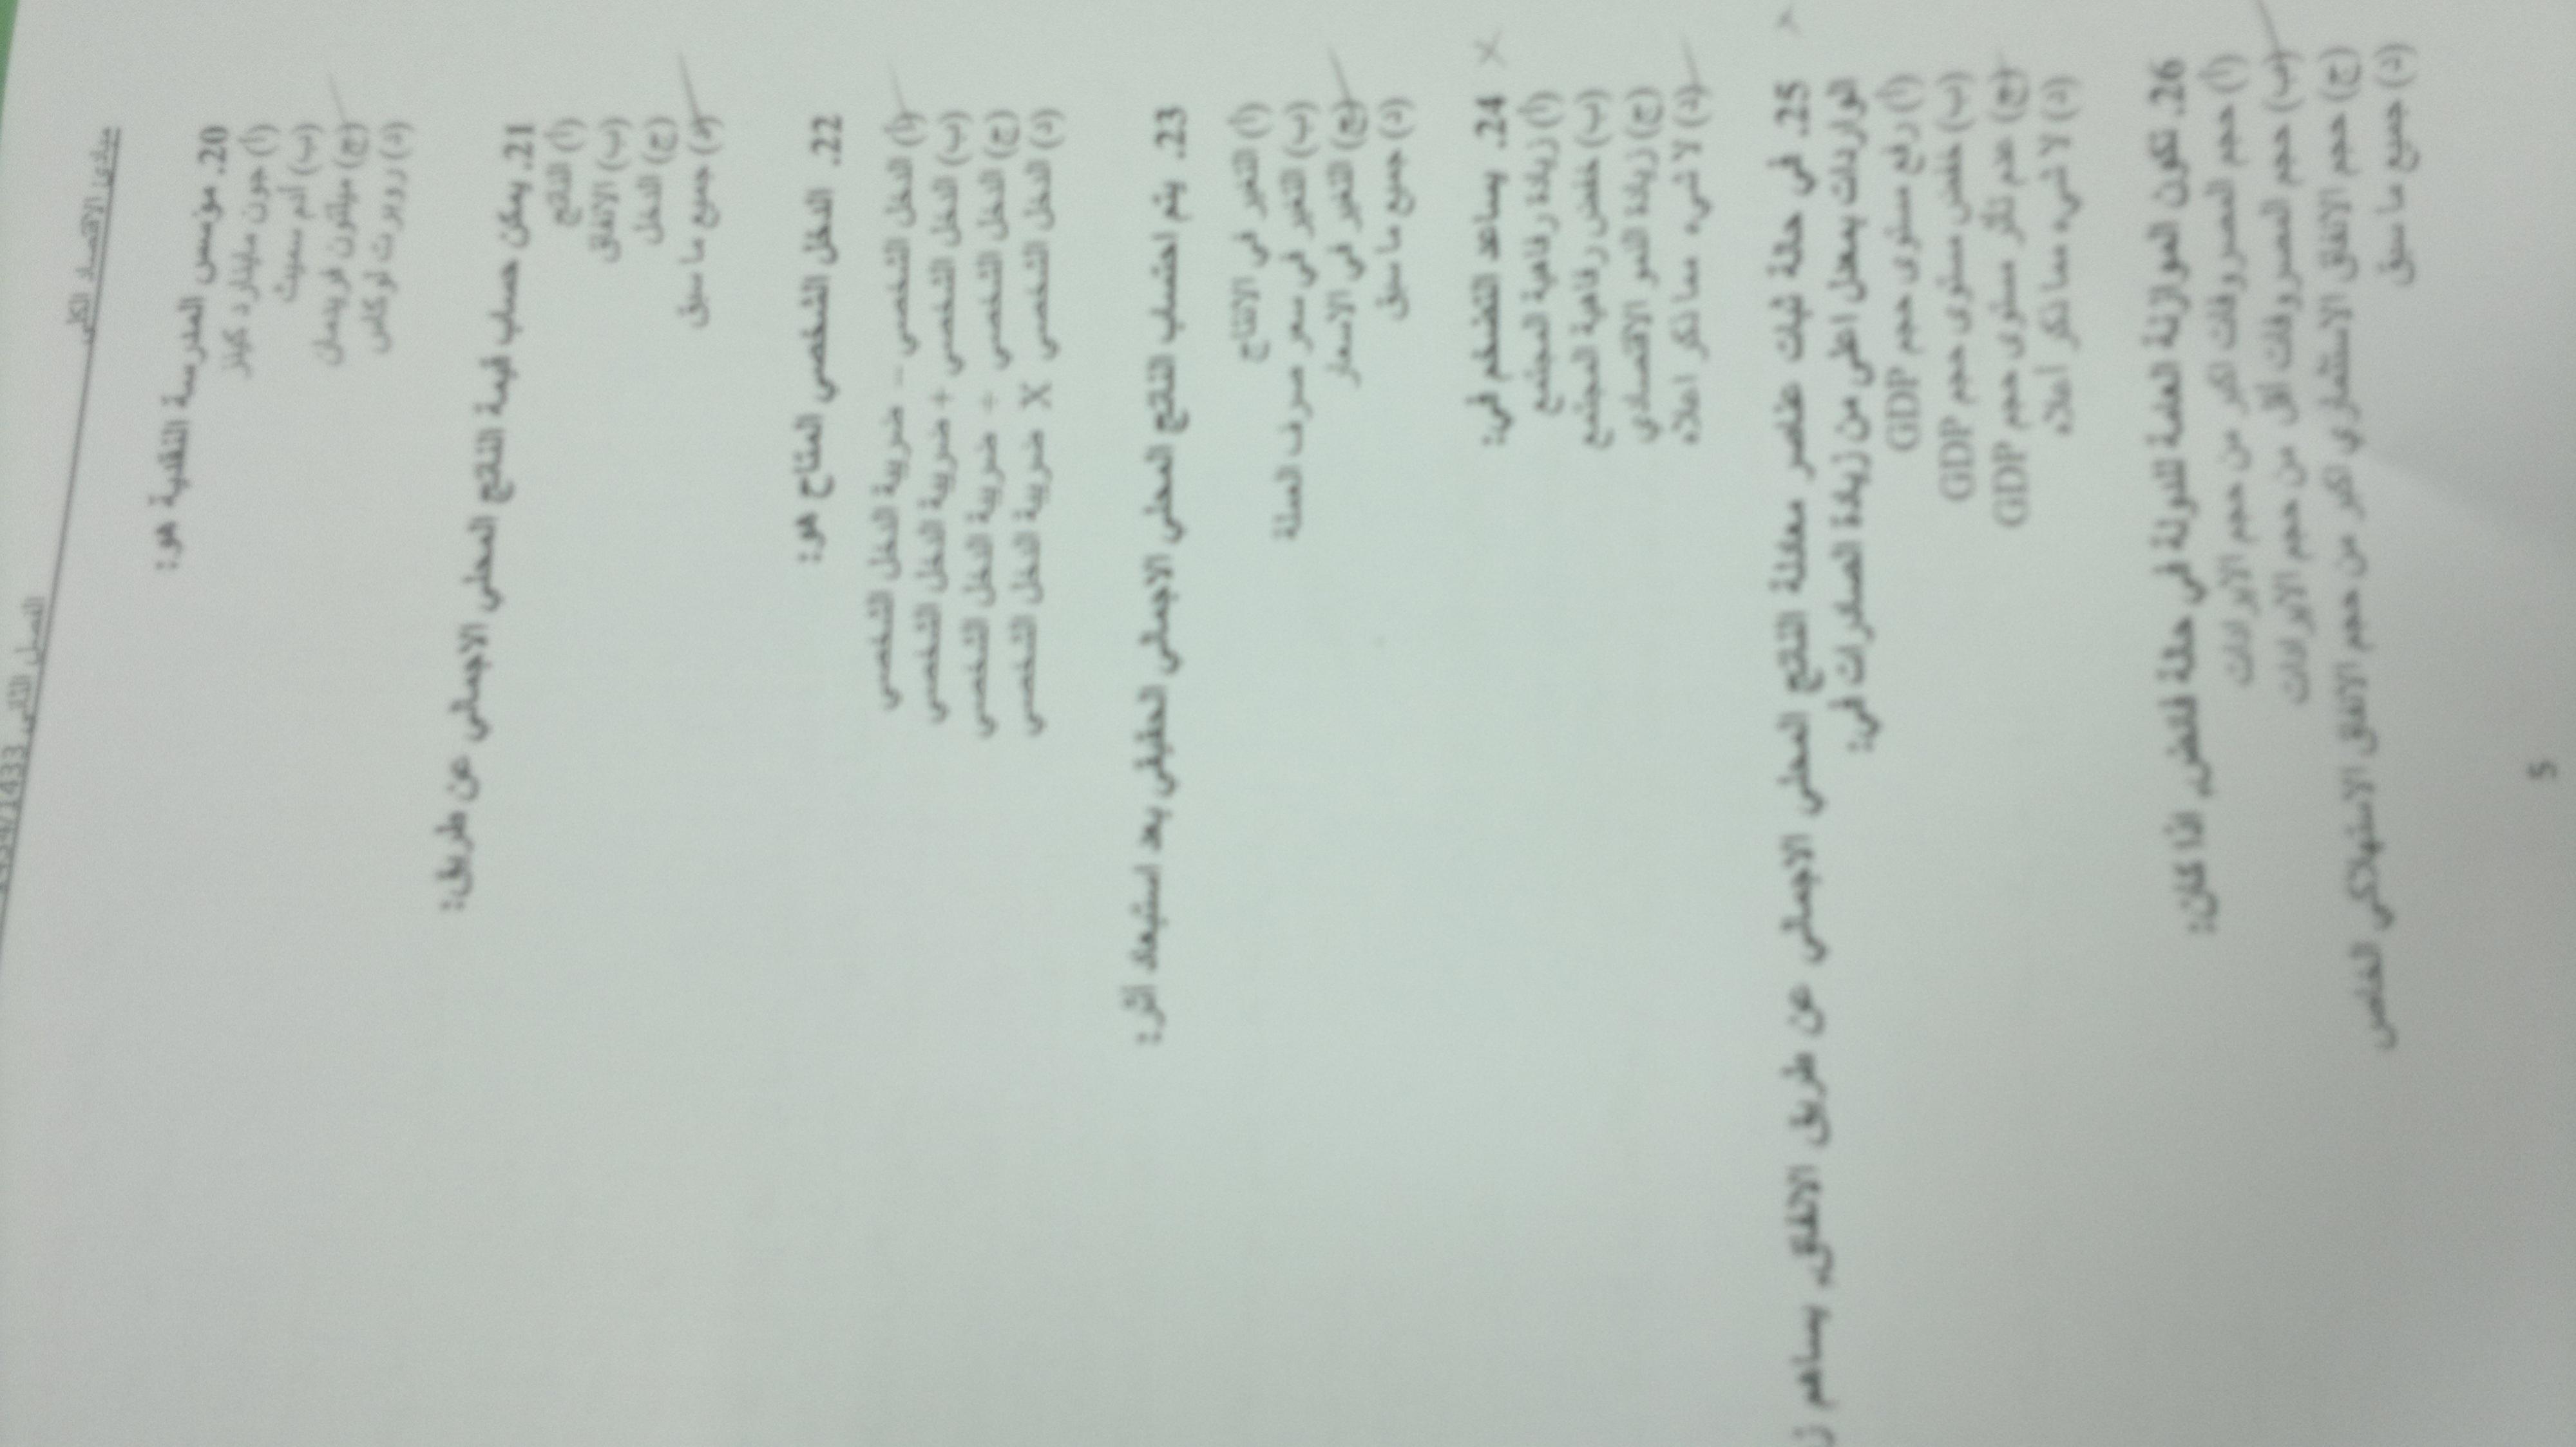 الفصل الثاني 1434/1433
مبادئ الاقتصاد الكلي
20. مؤسس المدرسة النقدية هو:
(أ) جون ميلنارد كينز
(ب) آدم سميث
(ج) ميلتون فريدمان
(د) روبرت لوكاس
21. يمكن حساب قيمة الناتج المحلي الاجمالي عن طريق:
(أ) الناتج
(ب) الانفاق
(ج) الدخل
(د) جميع ما سبق
22. الدخل الشخصي المتاح هو:
(أ) الدخل الشخصي - ضريبة الدخل الشخصي
(ب) الدخل الشخصي + ضريبة الدخل الشخصي
(ج) الدخل الشخصي ÷ ضريبة الدخل الشخصي
(د) الدخل الشخصي X ضريبة الدخل الشخصي
23. يتم احتساب الناتج المحلي الاجمالي الحقيقي بعد استبعاد أثر:
(أ) التغير في الانتاج
(ب) التغير في سعر صرف العملة
(ج) التغير في الاسعار
(د) جميع ما سبق
24. يساعد التضخم في:
(أ) زيادة رفاهية المجتمع
(ب) خفض رفاهية المجتمع
(ج) زيادة النمو الاقتصادي
(د) لا شيء مما ذكر اعلاه
25. في حالة ثبات عناصر معادلة الناتج المحلي الاجمالي عن طريق الانفاق، يساهم
الواردات بمعدل اعلى من زيادة الصادرات في:
(أ) رفع مستوى حجم GDP
(ب) خفض مستوى حجم GDP
(ج) عدم تأثر مستوى حجم GDP
(د) لا شيء مما ذكر أعلاه
26. تكون الموازنة العامة للدولة في حالة فائض، اذا كان:
(أ) حجم المصروفات اكبر من حجم الايرادات
(ب) حجم المصروفات أقل من حجم الايرادات
(ج) حجم الانفاق الاستثماري اكبر من حجم الانفاق الاستهلاكي الخاص
(د) جميع ما سبق
5